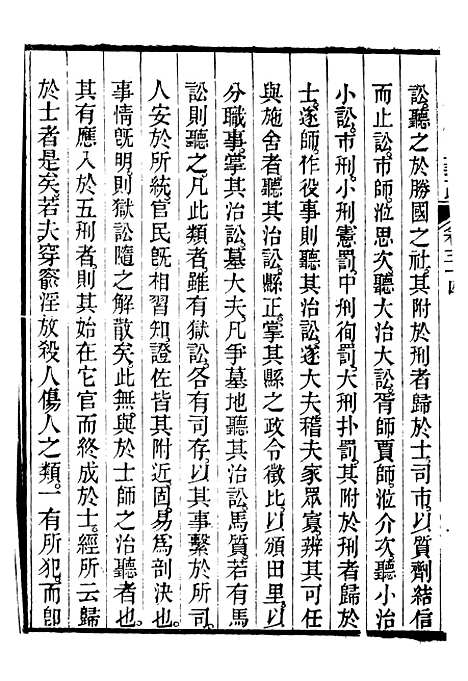 訟聽之於勝國之社其附於刑者歸於士司市以質劑結信
而止訟市師涖思次聽大治大訟胥師賈師涖介次聽小治
小訟市刑小刑憲罰中刑徇罰大刑扑罰其附於刑者歸於
士遂師作役事則聽其治訟遂大夫稽夫家眾寡辨其可任
與施舍者聽其治訟縣正掌其縣之政令徵比以頒田里以
分職事掌其治訟墓大夫凡爭墓地聽其治訟馬質若有馬
訟則聽之凡此類者雖有獄訟各有司存以其事繫於所司
人安於所統官民旣相習知證佐皆其附近固易爲剖決也
事情旣明則獄訟隨之解散矣此無與於士師之治聽者也
其有應入於五刑者則其始在它官而終成於士經所云歸
於士者是矣若夫穿窬淫放殺人傷人之類一有所犯而卽
卷三十四